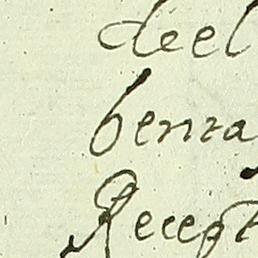 deel
benra
Recept